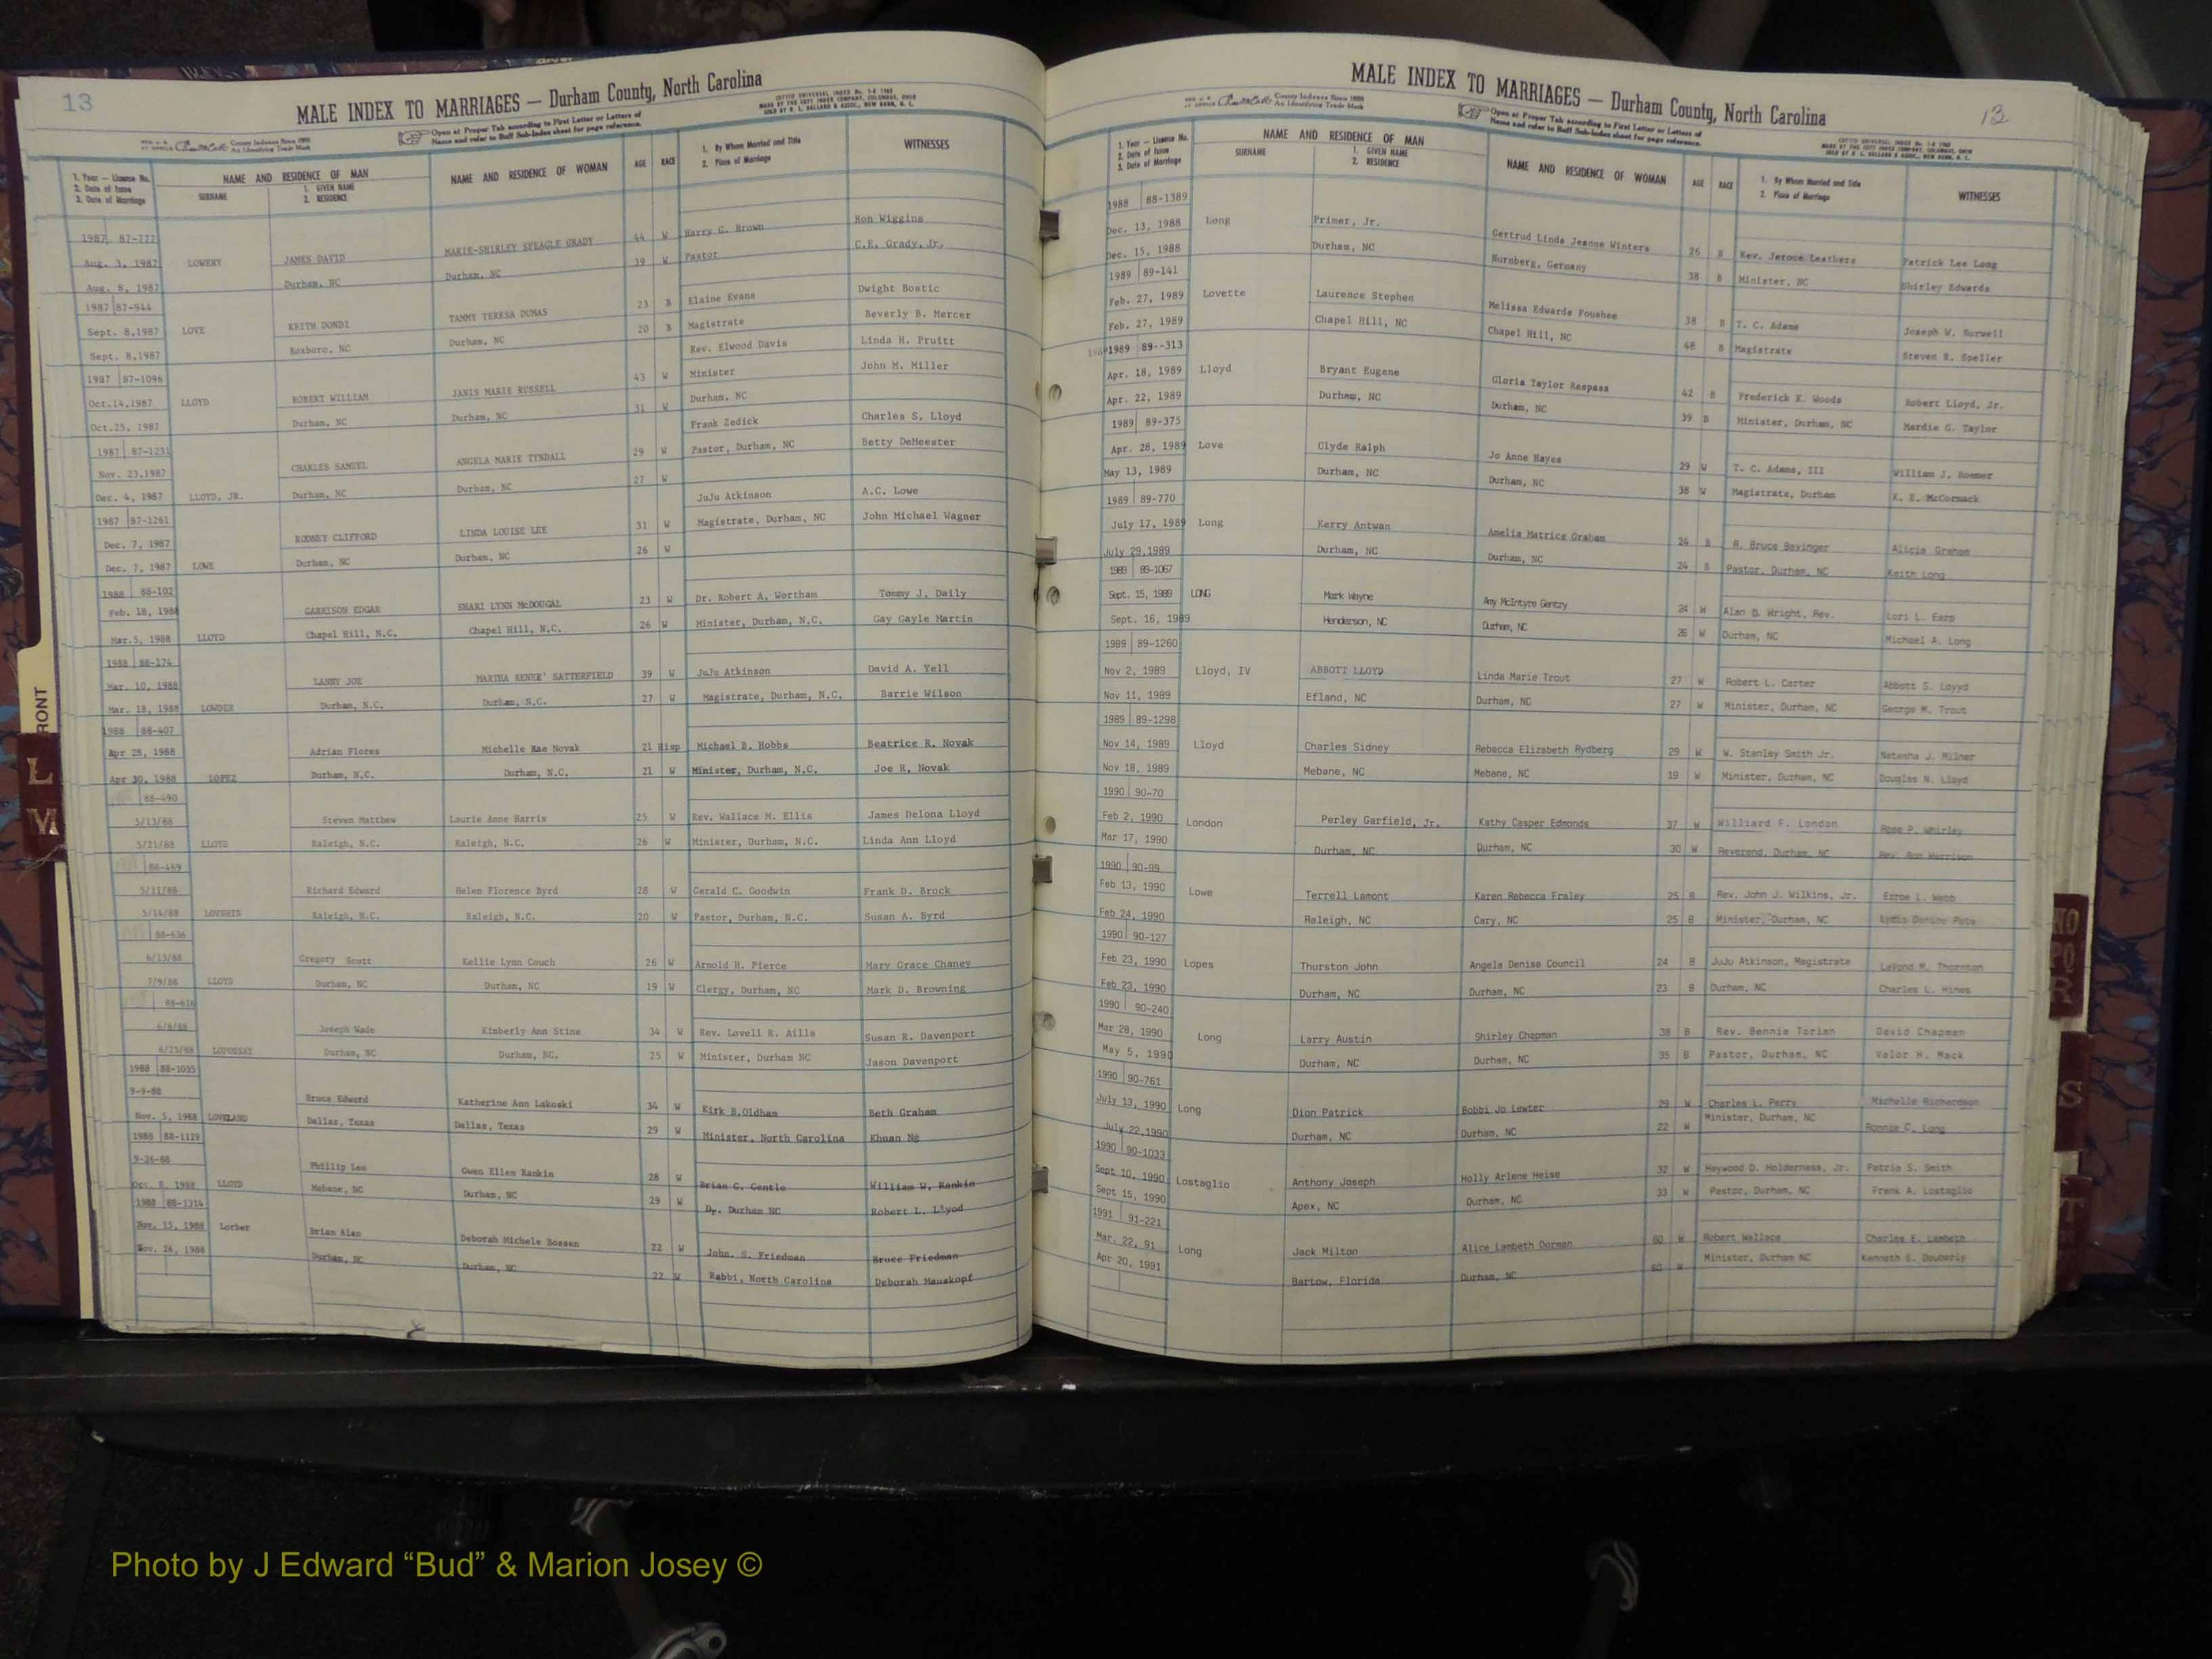 13
MALE INDEX TO MARRIAGES — Durham County, North Carolina
COTTED UNIVERSAL INDEX No. 1-8 1960
MADE BY THE COTT INDEX COMPANY, COLUMBUS, OHIO
SOLD BY O. L. BALLARD & ASSOC., NEW BERN, N. C.
County Indexes Since 1888
An Identifying Trade Mark
Open at Proper Tab according to First Letter or Letters of
Name and refer to Buff Sub-Index sheet for page reference.
1. Year — License No.
2. Date of Issue
3. Date of Marriage
NAME AND RESIDENCE OF MAN
SURNAME
1. GIVEN NAME
2. RESIDENCE
NAME AND RESIDENCE OF WOMAN
AGE
RACE
1. By Whom Married and Title
2. Place of Marriage
WITNESSES
1987 87-777 Ron Wiggins
Aug. 3, 1987 LOWERY JAMES DAVID MARIE-SHIRLEY SPEAGLE GRADY 44 W Harry G. Brown C.E. Grady, Jr.
Aug. 8, 1987 Durham, NC Durham, NC 39 W Pastor
1987 87-944 Dwight Bostic
Sept. 8,1987 LOVE KEITH DONDI TAMMY TERESA DUMAS 23 B Elaine Evans Beverly B. Mercer
Sept. 8,1987 Roxboro, NC Durham, NC 20 B Magistrate
1987 87-1096 Rev. Elwood Davis Linda H. Pruitt
Oct.14,1987 LLOYD ROBERT WILLIAM JANIS MARIE RUSSELL 43 W Minister John M. Miller
Oct.25, 1987 Durham, NC Durham, NC 31 W Durham, NC
1987 87-1231 Frank Zedick Charles S. Lloyd
Nov. 23,1987 CHARLES SAMUEL ANGELA MARIE TYNDALL 29 W Pastor, Durham, NC Betty DeMeester
Dec. 4, 1987 LLOYD, JR. Durham, NC Durham, NC 27 W
1987 87-1261 JuJu Atkinson A.C. Lowe
Dec. 7, 1987 RODNEY CLIFFORD LINDA LOUISE LEE 31 W Magistrate, Durham, NC John Michael Wagner
Dec. 7, 1987 LOWE Durham, NC Durham, NC 26 W
1988 88-102
Feb. 18, 1988 GARRISON EDGAR SHARI LYNN McDOUGAL 23 W Dr. Robert A. Wortham Tommy J. Daily
Mar.5, 1988 LLOYD Chapel Hill, N.C. Chapel Hill, N.C. 26 W Minister, Durham, N.C. Gay Gayle Martin
1988 88-174
Mar. 10, 1988 LANNY JOE MARTHA RENEE' SATTERFIELD 39 W JuJu Atkinson David A. Yell
Mar. 18, 1988 LOWDER Durham, N.C. Durham, N.C. 27 W Magistrate, Durham, N.C. Barrie Wilson
1988 88-407
Apr 28, 1988 Adrian Flores Michelle Rae Novak 21 Hisp Michael B. Hobbs Beatrice R. Novak
Apr 30, 1988 LOPEZ Durham, N.C. Durham, N.C. 21 W Minister, Durham, N.C. Joe R. Novak
88-490
5/13/88 Steven Matthew Laurie Anne Harris 25 W Rev. Wallace M. Ellis James Delona Lloyd
5/21/88 LLOYD Raleigh, N.C. Raleigh, N.C. 26 W Minister, Durham, N.C. Linda Ann Lloyd
88-469
5/11/88 Richard Edward Helen Florence Byrd 28 W Gerald C. Goodwin Frank D. Brock
5/14/88 LOVSHIN Raleigh, N.C. Raleigh, N.C. 20 W Pastor, Durham, N.C. Susan A. Byrd
88-636
6/13/88 Gregory Scott Kellie Lynn Couch 26 W Arnold H. Pierce Mary Grace Chaney
7/9/88 LLOYD Durham, NC Durham, NC 19 W Clergy, Durham, NC Mark D. Browning
88-616
6/8/88 Joseph Wade Kimberly Ann Stine 34 W Rev. Lovell R. Aills Susan R. Davenport
6/25/88 LOPOSSAY Durham, NC Durham, NC. 25 W Minister, Durham NC Jason Davenport
1988 88-1035
9-9-88 Bruce Edward Katherine Ann Lakoski 34 W Kirk B.Oldham Beth Graham
Nov. 5, 1988 LOVELAND Dallas, Texas Dallas, Texas 29 W Minister, North Carolina Khuan Ng
1988 88-1119
9-26-88 Phillip Lee Gwen Ellen Rankin 28 W Brian G. Gentle William W. Rankin
Oct. 8, 1988 LLOYD Mebane, NC Durham, NC 29 W Dr. Durham NC Robert L. Llyod
1988 88-1314
Nov. 15, 1988 Lorber Brian Alan Deborah Michele Bossen 22 W John. S. Friedman Bruce Friedman
Nov. 26, 1988 Durham, NC Durham, NC 22 W Rabbi, North Carolina Deborah Mauskopf
FRONT
L
M
MALE INDEX TO MARRIAGES — Durham County, North Carolina
13
County Indexes Since 1888
An Identifying Trade Mark
Open at Proper Tab according to First Letter or Letters of
Name and refer to Buff Sub-Index sheet for page reference.
COTTED UNIVERSAL INDEX No. 1-8 1960
MADE BY THE COTT INDEX COMPANY, COLUMBUS, OHIO
SOLD BY O. L. BALLARD & ASSOC., NEW BERN, N. C.
1. Year — License No.
2. Date of Issue
3. Date of Marriage
NAME AND RESIDENCE OF MAN
SURNAME
1. GIVEN NAME
2. RESIDENCE
NAME AND RESIDENCE OF WOMAN
AGE
RACE
1. By Whom Married and Title
2. Place of Marriage
WITNESSES
1988 88-1389
Dec. 13, 1988 Long Primer, Jr. Gertrud Linda Jeanne Winters 26 B Rev. Jerome Leathers Patrick Lee Long
Dec. 15, 1988 Durham, NC Nurnberg, Germany 38 B Minister, NC Shirley Edwards
1989 89-141
Feb. 27, 1989 Lovette Laurence Stephen Melissa Edwards Foushee 38 B T. C. Adams Joseph W. Burwell
Feb. 27, 1989 Chapel Hill, NC Chapel Hill, NC 48 B Magistrate Steven R. Speller
1989 89--313
Apr. 18, 1989 Lloyd Bryant Eugene Gloria Taylor Respass 42 B Frederick K. Woods Robert Lloyd, Jr.
Apr. 22, 1989 Durham, NC Durham, NC 39 B Minister, Durham, NC Mardie G. Taylor
1989 89-375
Apr. 28, 1989 Love Clyde Ralph Jo Anne Hayes 29 W T. C. Adams, III William J. Roemer
May 13, 1989 Durham, NC Durham, NC 38 W Magistrate, Durham K. E. McCormack
1989 89-770
July 17, 1989 Long Kerry Antwan Amelia Matrice Graham 24 B R. Bruce Bavinger Alicia Graham
July 29,1989 Durham, NC Durham, NC 24 B Pastor, Durham, NC Keith Long
1989 89-1067
Sept. 15, 1989 LONG Mark Wayne Amy McIntyre Gentry 24 W Alan B. Wright, Rev. Lori L. Earp
Sept. 16, 1989 Henderson, NC Durham, NC 26 W Durham, NC Michael A. Long
1989 89-1260
Nov 2, 1989 Lloyd, IV ABBOTT LLOYD Linda Marie Trout 27 W Robert L. Carter Abbott S. Loyyd
Nov 11, 1989 Efland, NC Durham, NC 27 W Minister, Durham, NC George M. Trout
1989 89-1298
Nov 14, 1989 Lloyd Charles Sidney Rebecca Elizabeth Rydberg 29 W W. Stanley Smith Jr. Natasha J. Milner
Nov 18, 1989 Mebane, NC Mebane, NC 19 W Minister, Durham, NC Douglas N. Lloyd
1990 90-70
Feb 2, 1990 London Perley Garfield, Jr. Kathy Casper Edmonds 37 W Williard F. London Rose P. Whirley
Mar 17, 1990 Durham, NC Durham, NC 30 W Reverend, Durham, NC Rev. Ron Harrison
1990 90-99
Feb 13, 1990 Lowe Terrell Lamont Karen Rebecca Fraley 25 B Rev. John J. Wilkins, Jr. L. Webb
Feb 24, 1990 Raleigh, NC Cary, NC 25 B Minister, Durham, NC Lydia Denise Pate
1990 90-127
Feb 23, 1990 Lopes Thurston John Angela Denise Council 24 B JuJu Atkinson, Magistrate M. Thornton
Feb 23, 1990 Durham, NC Durham, NC 23 B Durham, NC Charles L. Hines
1990 90-240
Mar 28, 1990 Long Larry Austin Shirley Chapman 38 B Rev. Bennie Torian David Chapman
May 5, 1990 Durham, NC Durham, NC 35 B Pastor, Durham, NC Valor H. Mack
1990 90-761
July 13, 1990 Long Dion Patrick Bobbi Jo Lewter 29 W Charles L. Perry Michelle Richardson
July 22,1990 Durham, NC Durham, NC 22 W Minister, Durham, NC Ronnie C. Long
1990 90-1033
Sept. 10, 1990 Lostaglio Anthony Joseph Holly Arlene Heise 32 W Haywood D. Holderness, Jr. Patria S. Smith
Sept 15, 1990 Apex, NC Durham, NC 33 W Pastor, Durham, NC Frank A. Lostaglio
1991 91-221
Mar. 22, 91 Long Jack Milton Alice Lambeth Dorman 60 W Robert Wallace Charles E. Lambeth
Apr 20, 1991 Bartow, Florida Durham, NC 68 W Minister, Durham NC Kenneth E. Deuberly
NO
PQ
R
S
T
Photo by J Edward “Bud” & Marion Josey ©